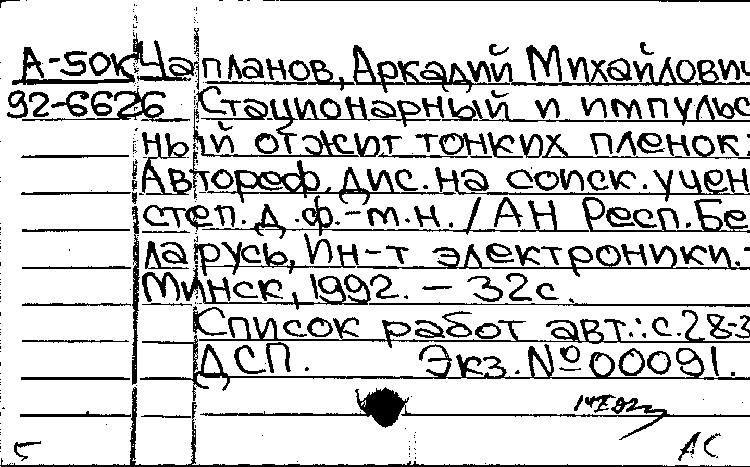 А-50К Чапланов, Аркадий Михайлович
92-6626 Стационарный и импульс
ный отжиг тонких пленок:
Автореф. дис. на соиск. учен
степ. д.ф.-м.н. / АН Респ. Бе
ларусь, Ин-т электроники. -
Минск, 1992. - 32 с.
Список работ авт.: с. 28-3
ДСП. Экз. № 00091.
АС